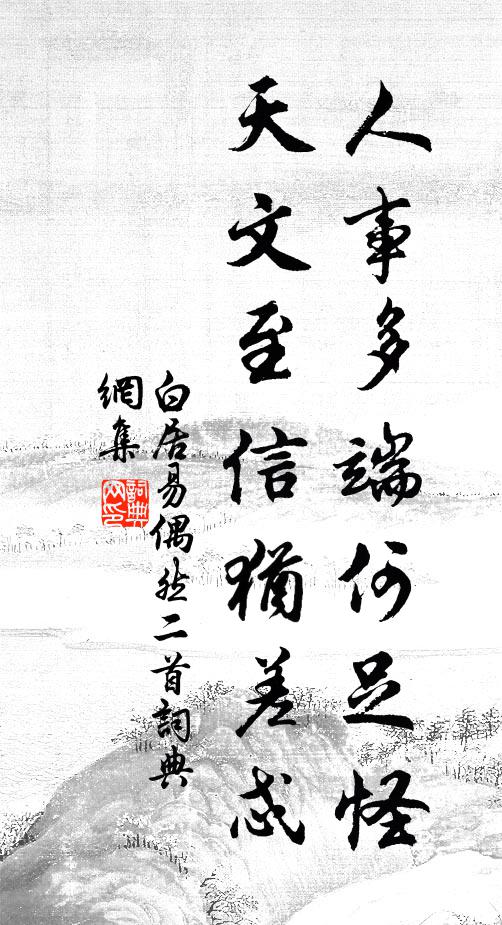 人事多端何足怪
天文至信猶差忒
白居易偶然二首詞典
網集
詞典
网印